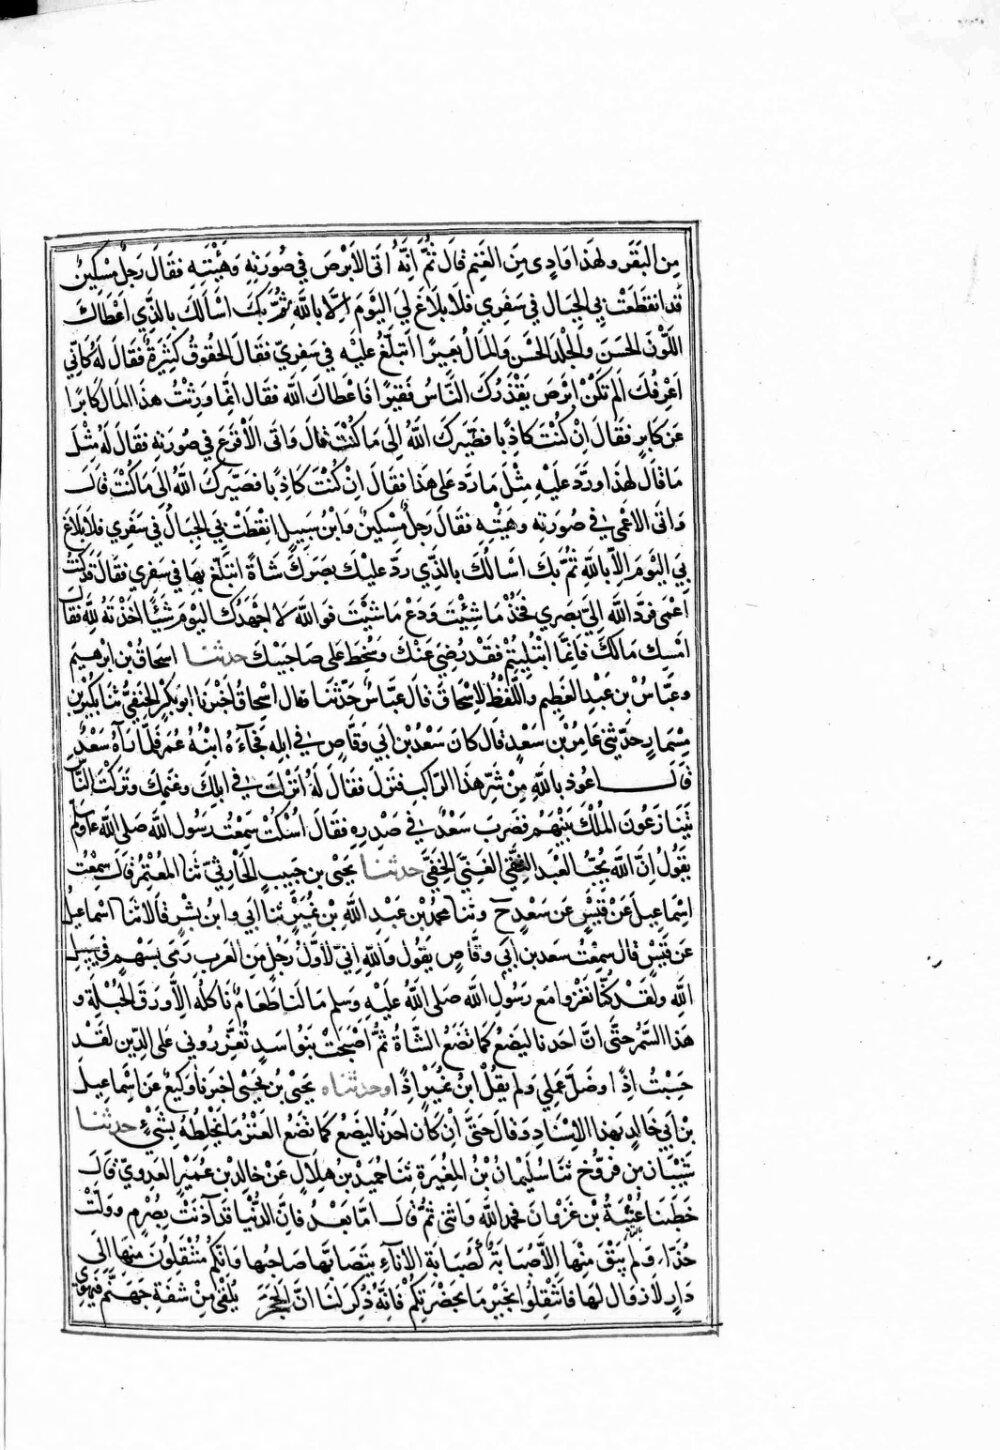 مِنَ البَقَرِ ولهَذا وَادٍى مِنَ الغَنَمِ قَالَ ثُمَّ اِنَّهُ اَتَى الاَبْرَصَ في صُورَتِهِ وَهَيْئَتِهِ فقَالَ رَجُلٌ مِسْكِينٌ
قَد انقَطَعَتْ بِيَ الجِبَال في سَفَرِي فلَا بَلَاغَ لِيَ اليَوْمَ اِلَّا بِاللَّهِ ثُمَّ بِكَ اسْاَلكَ بالذِّي اَعْطَاكَ
اللَّوْنَ الحَسَنَ وَالجِلْدَ الحَسَنَ وَالمالَ بَعِيرًا اَتبَلَّغُ عليْهِ في سَفَرِي فقَالَ الحُقوُقُ كَثِيرَةٌ فقَالَ لَهُ كَانِّي
اَعْرِفُكَ اَلَمْ تكُنْ ابْرَصَ يَقْذَرُكَ النَّاسُ فَقِيرًا فاَعْطَاكَ اللَّه فقَال اِنَّما وَرِثْتُ هذا المَالَ كَابِرًا
عَنْ كابِرٍ فقَالَ اِنْ كُنْتَ كَاذِبًا فصَيَّرَكَ اللَّهُ اِلَى مَا كُنْتَ قال وَاتَى الاَقْرَعَ في صُورَتِهِ فقَالَ لَهُ مِثْلَ
مَا قَال لهَذا وَرَدَّ عَلَيْهِ مِثْلَ مَا رَدَّ عَلى هَذا فقَالَ اِنْ كُنْتَ كَاذِبًا فصَيَّرَكَ اللَّهُ الىَ مَا كُنْتَ قالَ
وَاتَى الاَعْمَى في صُورَتِهِ وَهَيْئَتِهِ فقَالَ رَجُلٌ مِسْكِينٌ وَابْنُ سَبِيلٍ انْقَطَعَتْ بِيَ الجِبَالُ في سَفَرِي فلَا بَلَاغَ
بِيَ اليَوْمَ اِلَّا بِاللَّهِ ثُمَّ بِكَ اسَالُكَ بِالَّذِي ردَّ عليْكَ بَصَرَكَ شَاةً اتَبَلَّغ بِهَا في سَفَرِي فقَالَ قَدْ كُنْتُ
اَعْمَى فرَدَّ اللَّه اِلَيَّ بَصَرِي فخُذْ مَا شِئْتَ وَدَعْ مَا شِئْتَ فوَاللَّهِ لَا اَجْهَدُكَ اليَوْمَ شَيْئًا اَخَذْتَهُ لِلَّهِ فقالَ
اَمْسِكْ مَالَكَ فَاِنَّما ابْتُلِيتُمْ فقَدْ رُضِيَ عَنْكَ وسُخِطَ عَلى صَاحِبَيْكَ حدثنا اسحاقُ بن ابرهيم
وعبَّاسُ بن عَبْدِ العَظِيمِ واللَّفْظُ لِاِسْحَاقَ قالَ عبَّاسٌ حَدَّثَنَا وقال اِسْحَاقُ اَخبَرَنا ابوبَكْرٍ الحَنَفِيُّ ثنا بُكَيْر بن
مِسْمَارٍ حَدَّثَنِي عَامِرُ بْن سَعْدٍ قَالَ كَانَ سَعْدُ بن اَبي وَقَّاصٍ في اِبلِهِ فَجَآءَهُ ابْنُهُ عُمَر فلَمَّا رَآهُ سَعْدٌ
قَالَ اَعُوذ باللَّهِ مِنْ شَرِّ هَذا الرَّاكِبِ فَنزَلَ فقَالَ لَهُ اَنَزَلْتَ في ابلِكَ وغَنَمِكَ وَتَرَكْتَ النَّاسَ
يَتَنَازَعُونَ المُلْكَ بَيْنَهُم فَضَرَبَ سَعْدٌ في صَدْرِهِ فقَالَ اسْكُتْ سَمِعْتُ رَسُولَ اللَّه صَلى اللَّه عليه وسلم
يقُولُ اِنَّ اللَّهَ يُحِبُّ العَبْدَ التَّقِيَّ الغَنِيَّ الخَفِيَّ حدثنا يَحْيَى بن حَبِيبٍ الحَارِثيّ ثنا المُعْتَمِرُ قالَ سَمِعْتُ
اِسْمَاعِيلَ عَنْ قَيْسٍ عَن سَعْدٍ حَ وثنا محمد بن عَبْدِ اللَّهِ بْن نُمَيْرٍ ثنا اَبي وَابنُ بشْرٍ قالا ثنا اسْماعيلُ
عَن قَيْسٍ قال سَمِعْتُ سَعد بن اَبي وقَّاصٍ يَقولُ وَاللَّهِ اِنّي لَاَوَّلُ رَجُلٍ مِنَ العَرَبِ رَمَى بِسَهْمٍ في سَبيلِ
اللَّهِ ولَقَدْ كُنَّا نَغْزُوا مَعَ رَسُولِ اللَّه صَلى اللَّهُ عَلَيْهِ وسَلم مَا لَنَا طَعَامٌ نَاْكُلُهُ اِلَّا وَرَقَ الحُبْلَةِ و
هذَا السَّمُرُ حتَّى اِنَّ احَدَنا ليَضَعُ كَما تضَعُ الشَّاةُ ثُمَّ اَصْبَحَتْ بَنُو اَسَدٍ تُعَزِّرُوني عَلى الدِّينِ لقَدْ
خِبْتُ اِذًا وَضَلَّ عَمَلِي وَلم يقُلْ ابنُ نُمَيْرٍ اِذًا وحدثناه يَحْيَى بن يَحْيَى اخبرَنا وَكِيعٌ عَنْ اِسْماعِيلَ
بن اَبي خَالِدٍ بهَذا الاِسْنَادِ وَقالَ حَتَّى اِنْ كَانَ اَحَدُنا ليَضَعُ كَما تَضَعُ العَنْزُ مَا يَخْلِطُهُ بِشَيْءٍ حدثنا
شَيْبَان بن فَرُّوخَ ثنا سُليْمَانُ بْنُ المُغِيرَةِ ثنا حُمَيْد بن هِلَالٍ عَنْ خالِد بن عُمَيْرٍ العَدَوِيّ قَالَ
خَطَبَنا عُتْبَةُ بْن غَزْوَانَ فحمِدَ اللَّه وَاثنَى ثمَّ قالَ امَّا بَعْدُ فَاِنَّ الدُّنْيَا قَد آذَنَتْ بِصُرْمٍ وَوَلَّتْ
حُذَّاءَ وَلَمْ يَبْقَ مِنْهَا اِلَّا صُبَابَةٌ كَصُبَابَةِ الاِنآءِ يتَصَابُّها صَاحِبُها وَاِنَّكُمْ مُنْتَقِلُونَ مِنهَا اِلَى
دَارٍ لَا زَوَالَ لهَا فانْتَقِلُوا بخَيْرِ مَا بحَضْرَتِكُمْ فَاِنَّهُ ذُكِرَ لنَا اَنَّ الحَجَرَ يُلْقَى مِنْ شَفَةِ جَهَنَّمَ فيَهْوِي